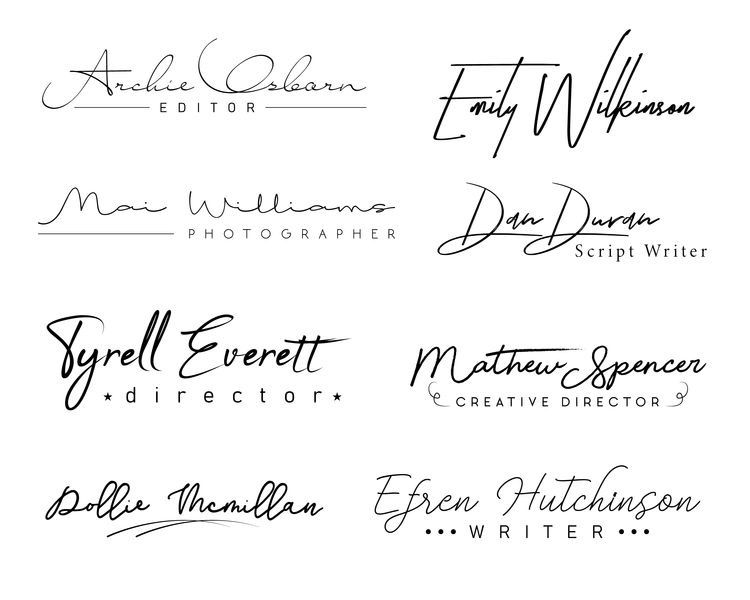 Archie Osborn
EDITOR
Emily Wilkinson
Mai Williams
PHOTOGRAPHER
Dan Duran
Script Writer
Tyrell Everett
director
Mathew Spencer
CREATIVE DIRECTOR
Dollie Mcmillan
Efren Hutchinson
WRITER